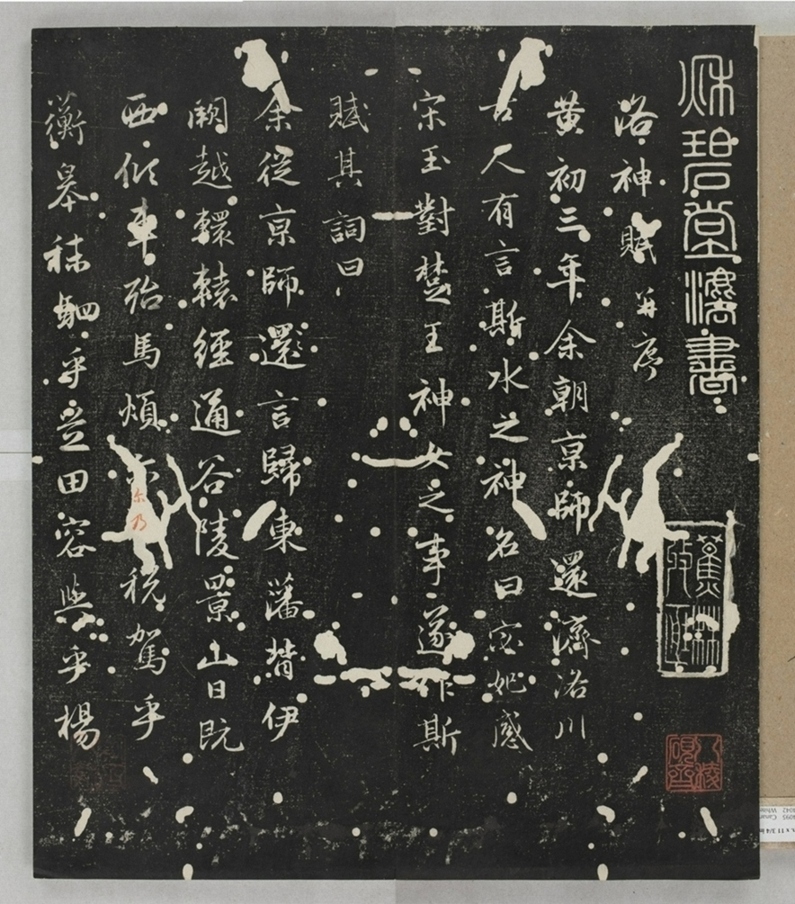 秋碧堂灋書
洛神賦并序
黄初三年余朝亰師還濟洛川
古人有言斯水之神名曰宓妃感
宋玉對楚王神女之事遂作斯
賦其詞曰
余從亰師還言歸東藩背伊
闕越轘轅經通谷陵景山日既
西傾車殆馬煩尒乃税駕乎
蘅皋秣駟乎芝田容與乎楊
蕉林